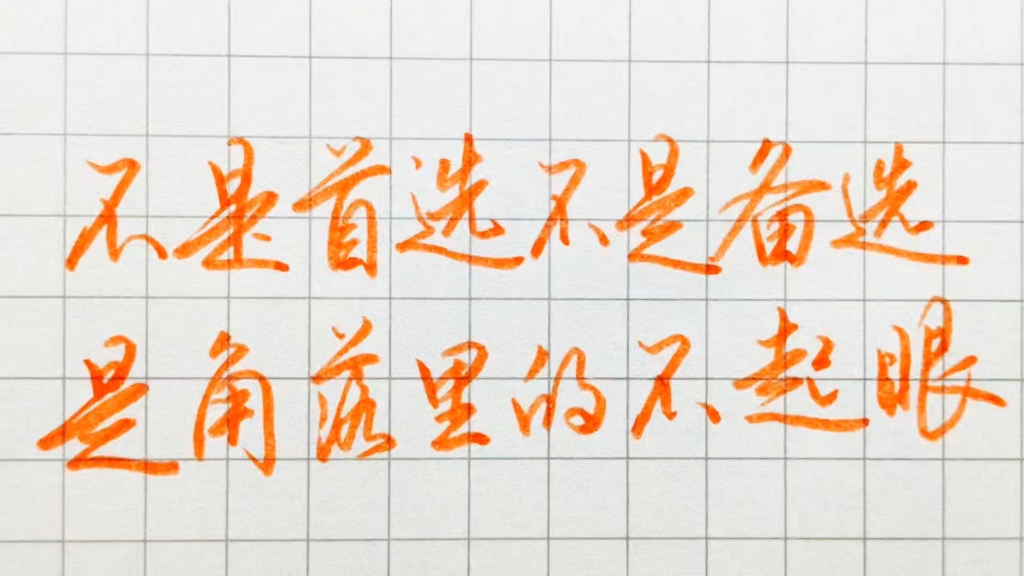 不是首选不是备选
是角落里的不起眼